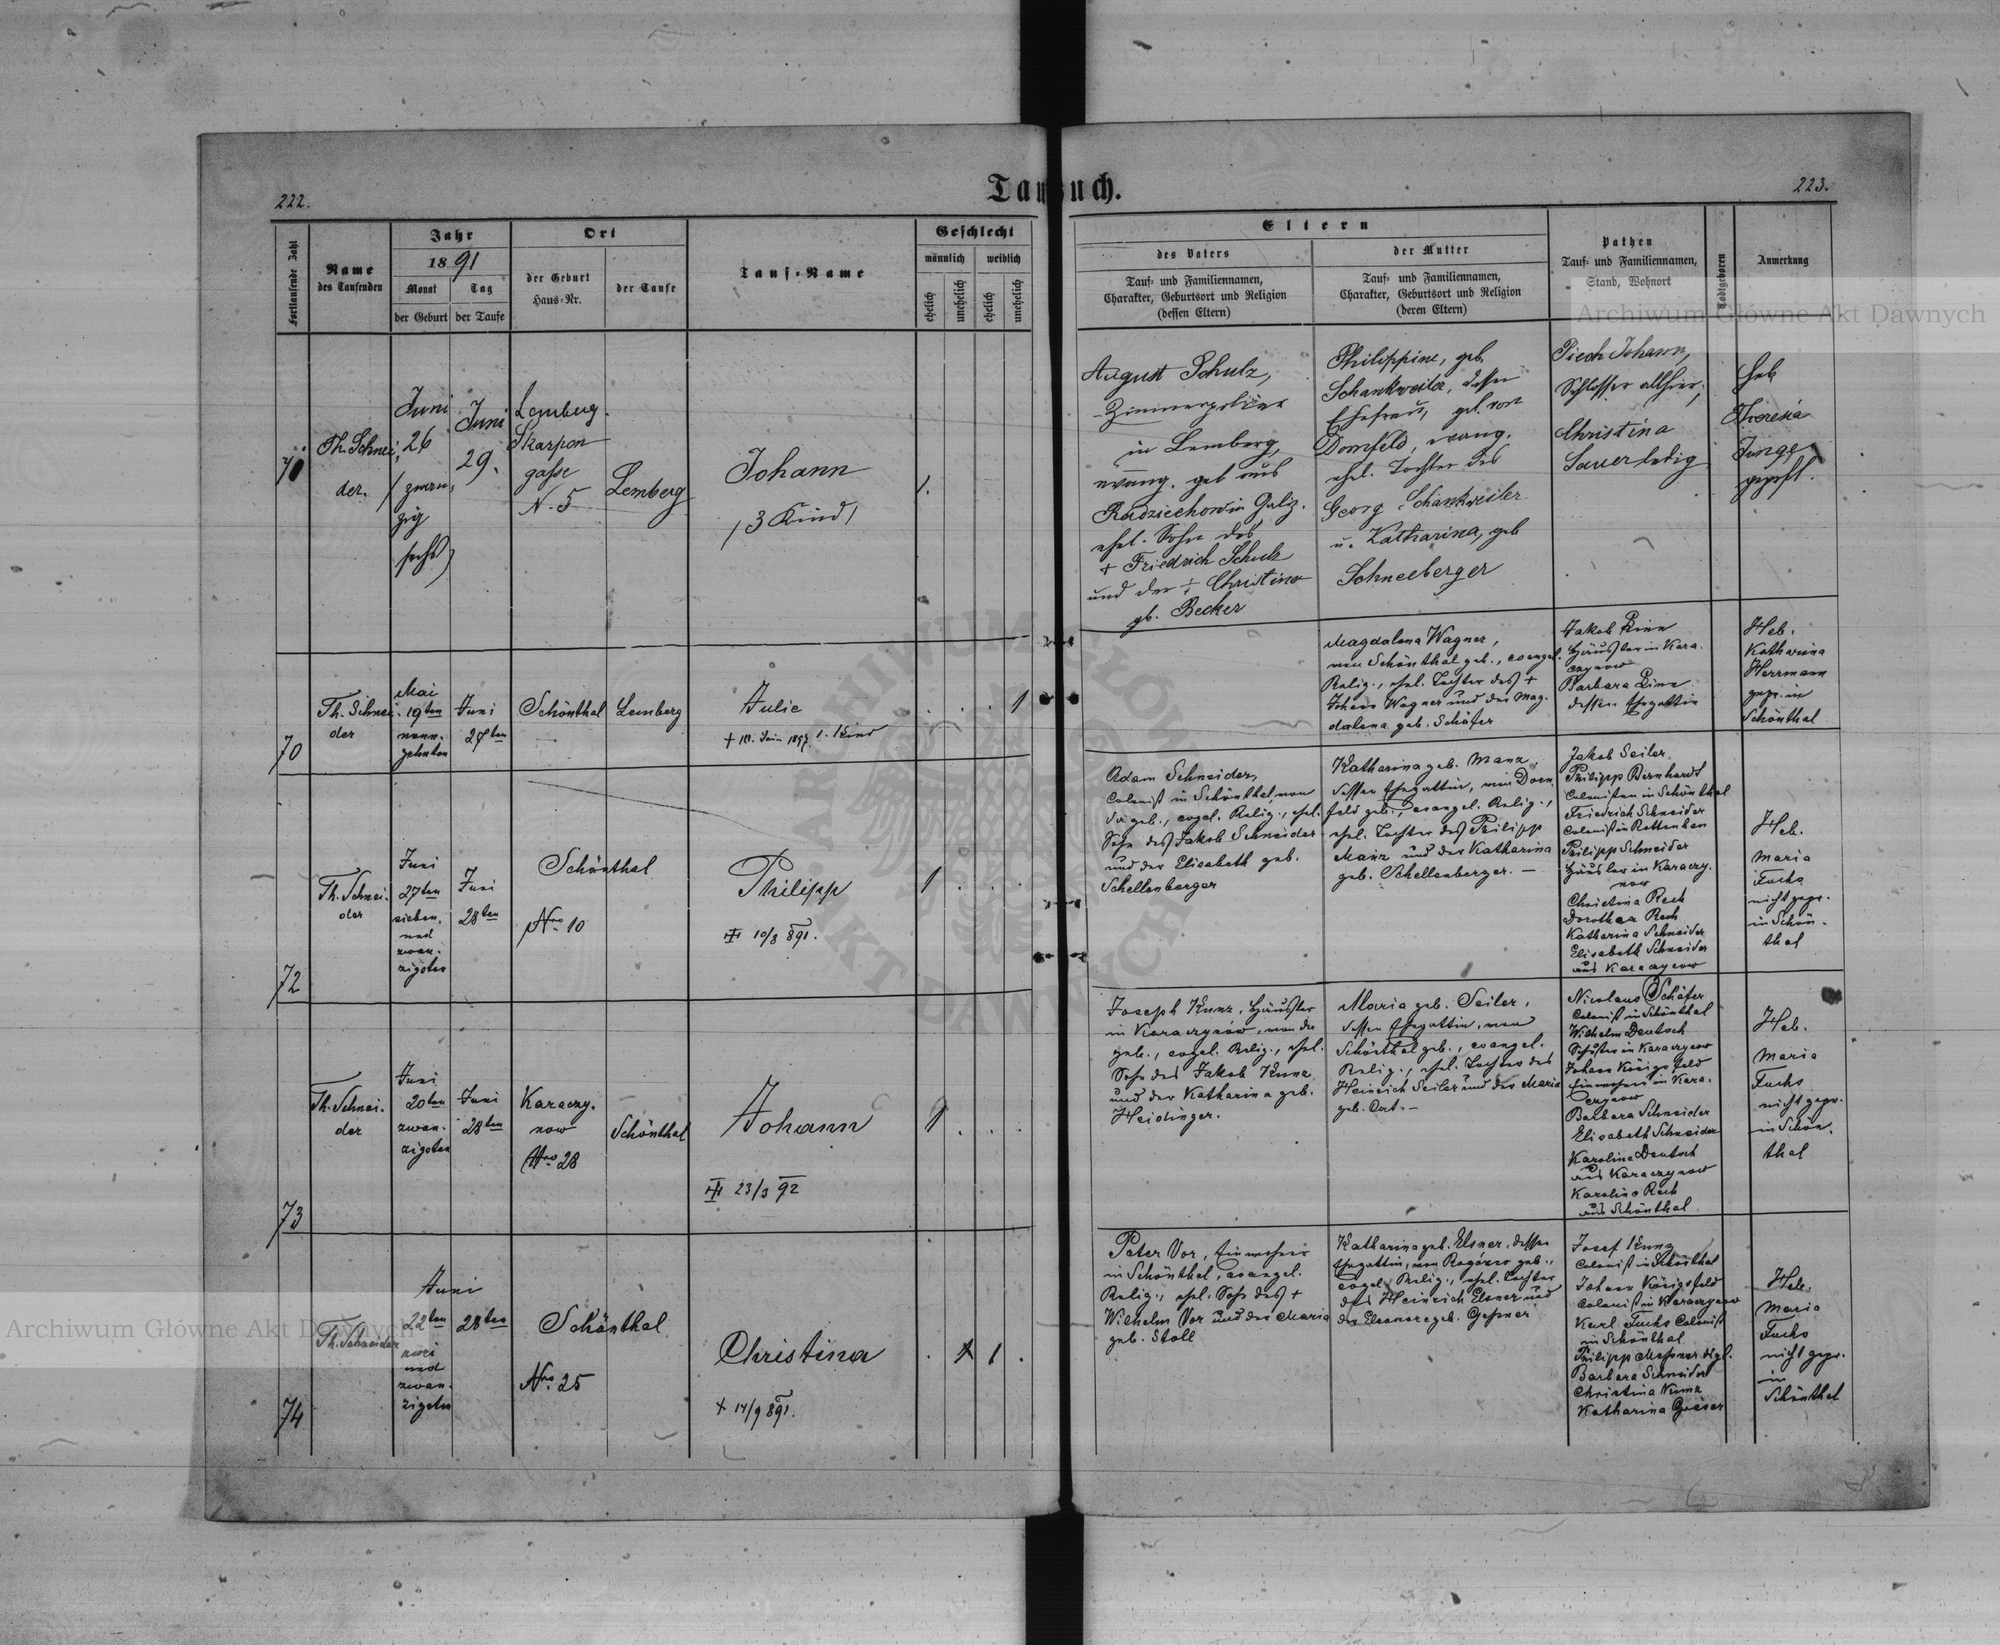 222.
Taufbuch.
223.
Fortlaufende Zahl
Name
des Taufenden
Jahr
1891
Monat
Tag
der Geburt
der Taufe
Ort
der Geburt
Haus-Nr.
der Taufe
Tauf-Name
Geschlecht
männlich
weiblich
ehelich
unehelich
ehelich
unehelich
Eltern
des Vaters
Tauf- und Familiennamen,
Charakter, Geburtsort und Religion
(dessen Eltern)
der Mutter
Tauf- und Familiennamen,
Charakter, Geburtsort und Religion
(deren Eltern)
Pathen
Tauf- und Familiennamen,
Stand, Wohnort
Todtgeboren
Anmerkung
Th. Schnei-
der.
Juni
26
(zwan-
zig
sechs)
Juni
29.
Lemberg
Skarpen
gasse
N. 5
Lemberg
Johann
/3 Kind/
1.
August Schulz,
in Lemberg,
evang. geb aus
Radziechow in Galiz.
ehel. Sohn des
+ Friedrich Schulz
und der + Christina
gb. Becker
Philippine, geb.
Schankweiler, dessen
Ehefrau, geb. von
Dornfeld, evang.
ehel. Tochter des
Georg Schankweiler
u. Katharina, geb
Schneeberger
Piech Johann,
Schlosser allhier,
Christina
Sauer ledig
Heb
Theresia
Junge
geprft.
70
Th. Schnei-
der
Mai
19ten
neun-
zehnten
Juni
27ten
Schönthal
Lemberg
Julie
1. Kind
1
Magdalena Wagner,
von Schönthal geb., evangel.
Relig., ehel. Tochter des +
Johann Wagner und der Mag-
dalena geb. Schäfer
Jakob Rinn
Häusler in Kara-
czynow
Barbara Rinn
dessen Ehegattin
Heb.
Katharina
Herrmann
gepr. in
Schönthal
72
Th. Schnei-
der
Juni
27ten
sieben-
und
zwan-
zigsten
Juni
28ten
Schönthal
Nro 10
Philipp
10/8 891.
1
Adam Schneider,
Colonist in Schönthal, von
da geb., evgel. Relig., ehel.
Sohn des Jakob Schneider
und der Elisabeth geb.
Schellenberger
Katharina geb. Manz,
dessen Ehegattin, von Dorn-
feld geb., evangel. Relig.,
ehel. Tochter des Philipp
Manz und der Katharina
geb. Schellenberger. —
Jakob Seiler
Philipp Bernhardt
Colonisten in Schönthal
Friedrich Schneider
Colonist in Rottenhan
Philipp Schneider
Häusler in Karaczy-
now
Christina Rech
Dorothea Rech
Katharina Schneider
Elisabeth Schneider
aus Karaczynow
Heb.
Maria
Fuchs
nicht gepr.
in Schön-
thal
73
Th. Schnei-
der
Juni
20ten
zwan-
zigsten
Juni
28ten
Karaczy-
now
Nro 28
Schönthal
Johann
23/3 92
1
Joseph Kunz, Häusler
in Karaczynów, von da
geb., evgel. Relig., ehel.
Sohn des Jakob Kunz
und der Katharina geb.
Heidinger.
Maria geb. Seiler,
dessen Ehegattin, von
Schönthal geb., evangel.
Relig., ehel. Tochter des
Heinrich Seiler und der Maria
geb. Ort. —
Nicolaus Schäfer
Colonist in Schönthal
Wilhelm Deutsch
Schuster in Karaczynow
Johann Königsfeld
Einwohner in Kara-
czynow
Barbara Schneider
Elisabeth Schneider
Karolina Deutsch
aus Karaczynow
Karolina Rech
aus Schönthal
Heb.
Maria
Fuchs
nicht gepr.
in Schön-
thal
74
Th. Schneider
Juni
22ten
zwei
und
zwan-
zigsten
28ten
Schönthal
Nro 25
Christina
+ 14/9 891.
1
Peter Vor, Einwohner
in Schönthal, evangel.
Relig., ehel. Sohn des +
Wilhelm Vor und der Maria
geb. Stoll
Katharina geb. Elsner, dessen
Ehegattin, von geb.,
evgel. Relig., ehel. Tochter
des Heinrich Elsner und
der Eleonore geb. Gessner
Josef Kunz
Colonist in Schönthal
Johann Königsfeld
Colonist in Karaczynow
Karl Fuchs Colonist
in Schönthal
Philipp
Barbara Schneider
Christina Kunz
Katharina
Heb.
Maria
Fuchs
nicht gepr.
in
Schönthal
Archiwum Główne Akt Dawnych
Archiwum Główne Akt Dawnych
ARCHIWUM GŁÓWNE AKT DAWNYCH